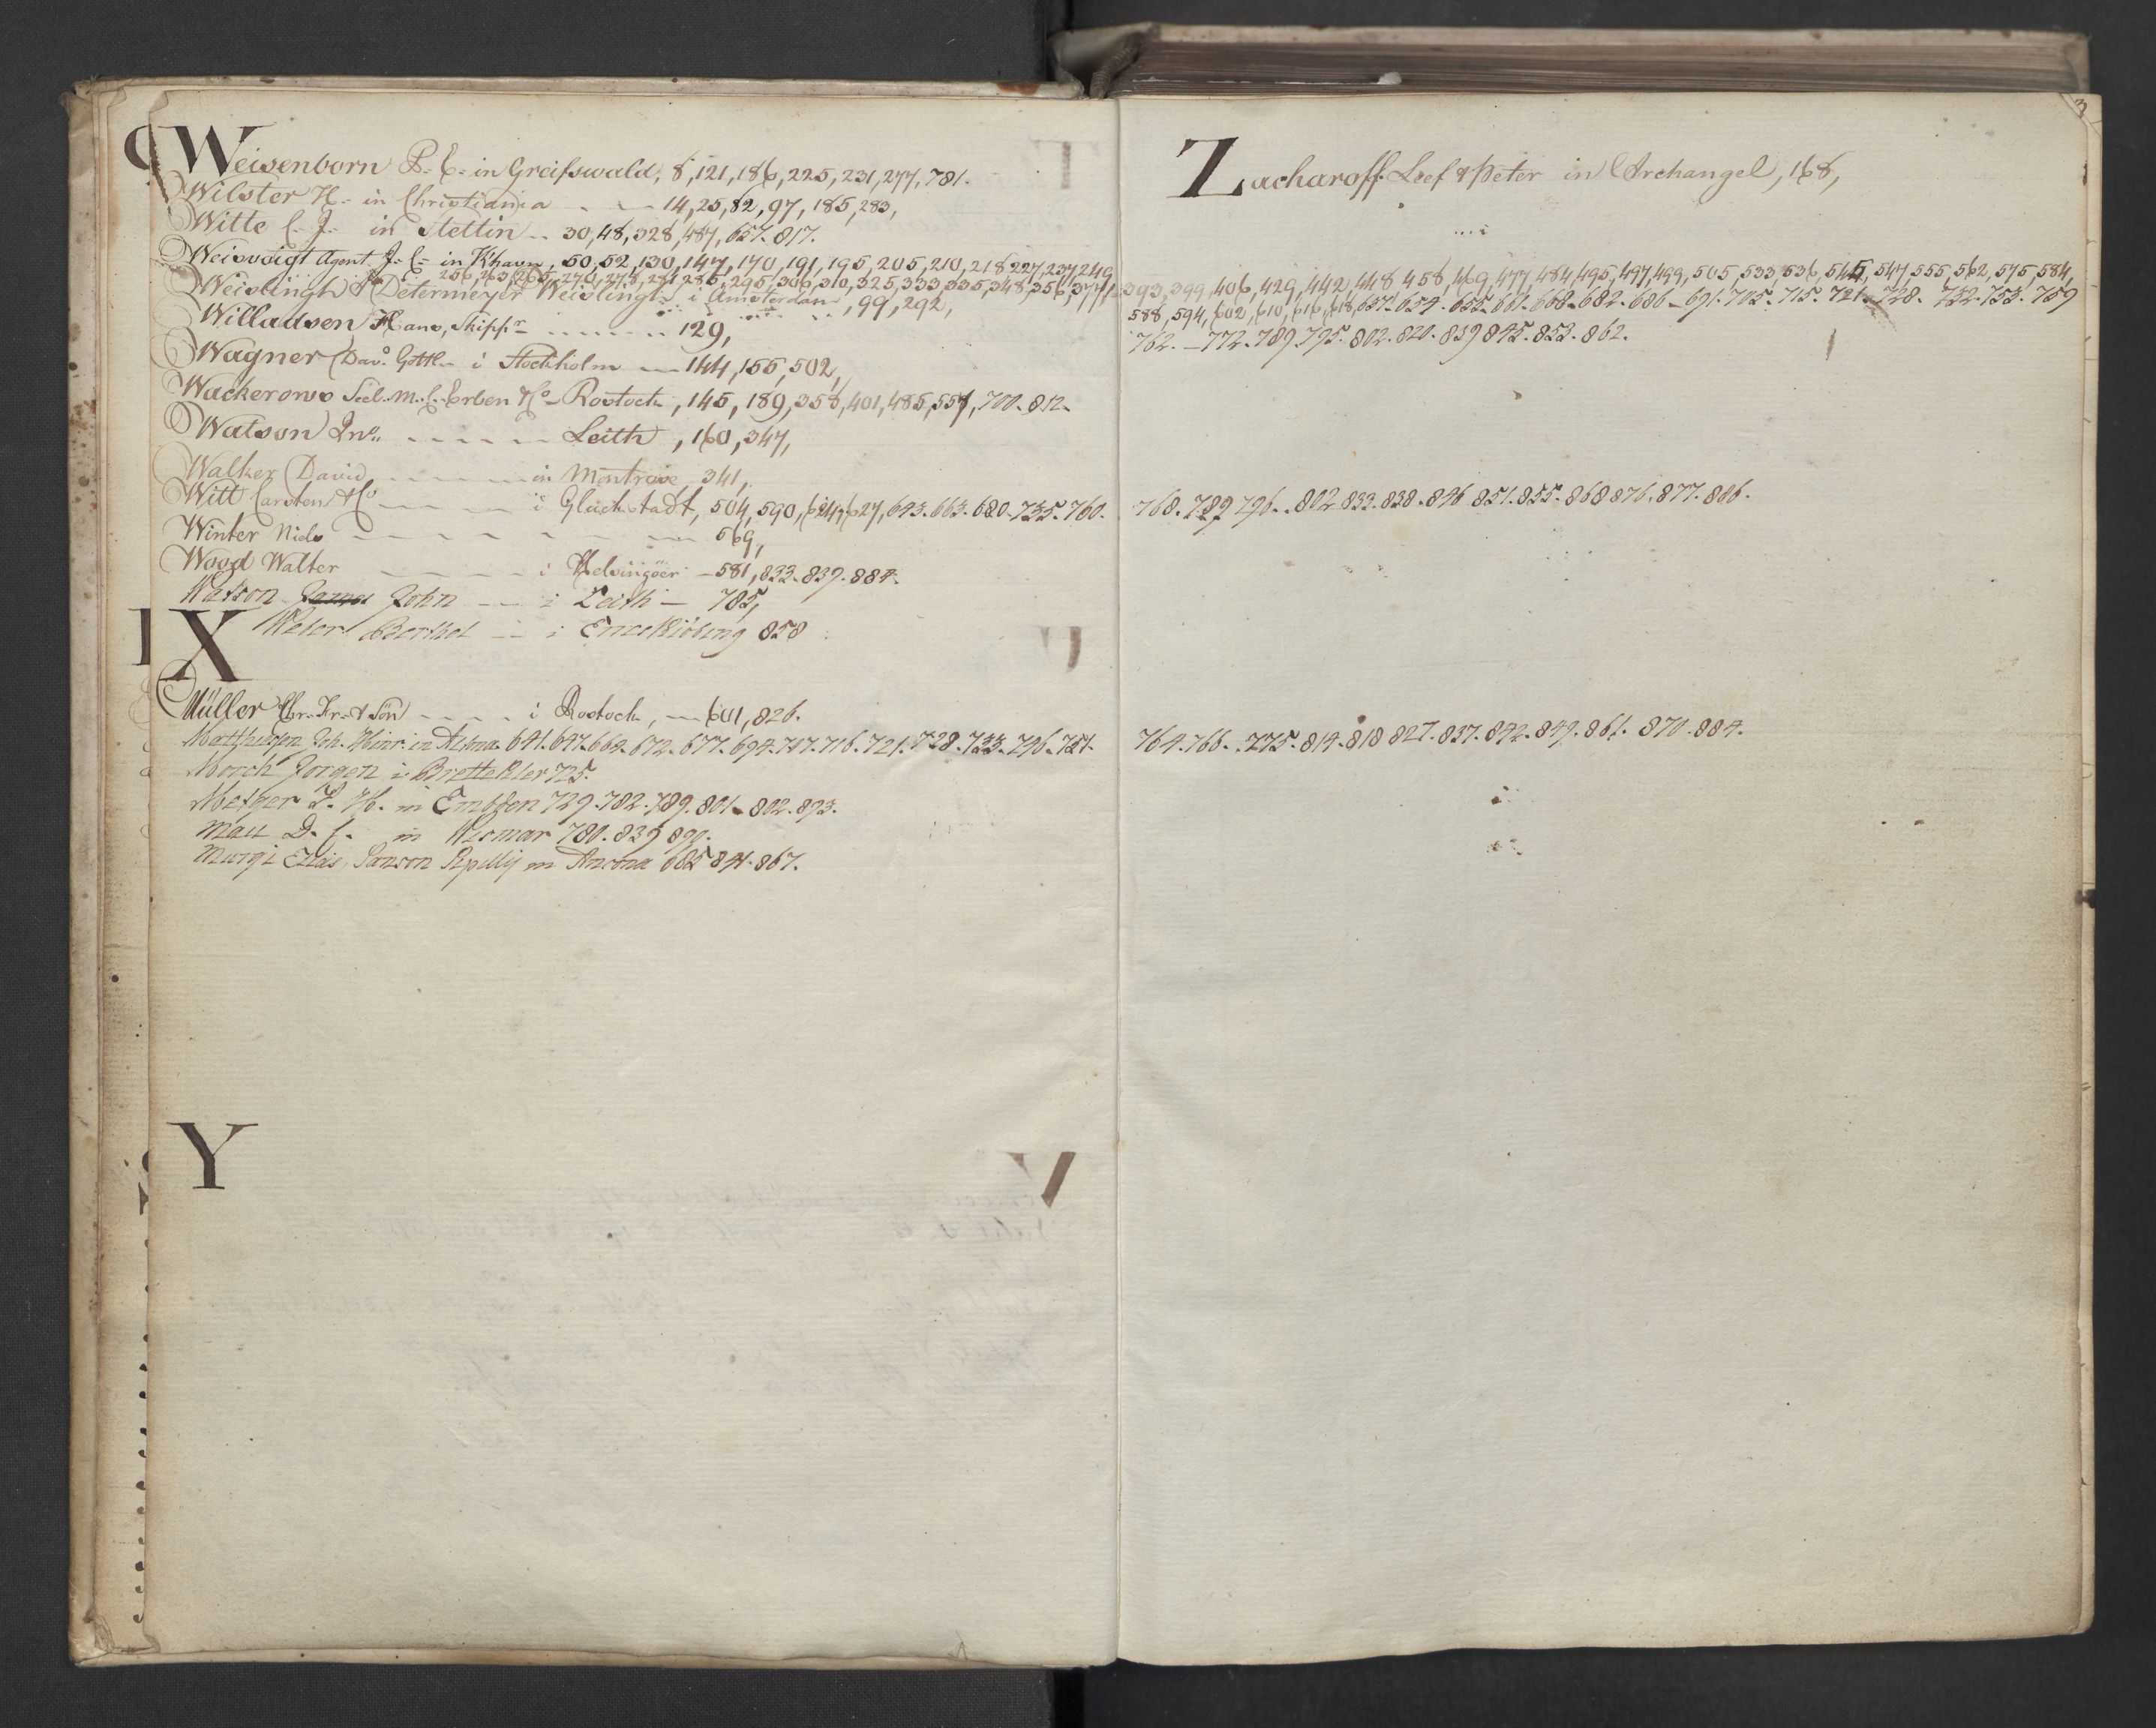 Weisenborn P. C. in Greifswald, 8, 121, 186, 225, 231, 277, 781.
Wilster H. in Christiania - - 14, 25, 82, 97, 185, 283,
Witte C. J. in Stettin - - 30, 48, 328, 487, 657. 817.
Weisvoigt Agent J. C. in Khavn, 50, 52, 130, 147, 170, 191, 195, 205, 210, 218 227, 237, 249,
256, 263, 265, 270, 278, 281, 286, 295, 306, 310, 325, 333, 335, 348, 356, 377,
Weislingh Determeyer Weislingh i Amsterdam, 99, 292,
Willadsen Hans, Skippr - - - - 129,
Wagner Davd. Gottl. i Stockholm - 144, 155, 502,
Wackerows Seel. M. C. Erben & Co - Rostock, 145, 189, 358, 401, 485, 557, 700. 812.
Watson Jno. - - - - - Leith, 160, 347,
Walker David - - - - in Montrose 341,
Witt Carsten & Co - - - i Glückstadt, 504, 590, 624, 627, 643. 663. 680. 735. 760.
Winter Niels - - - - - - 569,
Wood Walter - - - - i Helsingöer - 581, 833. 839. 884.
Watson James John - - i Leith - 785,
Weber Berthel - - i 858
X
Müller Chr. Fr. & Sön - - - - i Rostock, - 601, 826.
Matthiesen Joh. Hinr. in Altona 641. 647. 662. 672. 677. 694. 717. 716. 721. 728. 733. 746. 757.
Morch Jorgen i 725.
Metger P. H. in Embden 729. 782. 789. 801. 802. 893.
Mau D. C. in Wismar 780. 839 890.
Elias Sanson in Ancona 841. 867.
Y
3
Zacharoff Leef & Peter in Archangel, 168,
393, 399, 406, 429, 442, 448 458, 469, 477, 484, 495, 497, 499, 505, 533 536, 545, 547, 555, 562, 575, 584,
588, 594, 602, 610, 616, 618, 637. 654. 655. 661. 668. 682. 686. 691. 705. 715. 721. 728. 732. 753. 759
762. - 772. 789. 795. 802. 820. 839 845. 853. 862.
768. 789 796. 802 833. 838. 846 851. 855. 868 876. 877. 886.
764. 766. 775. 814. 818 827. 837. 842. 849. 861. 870. 884.